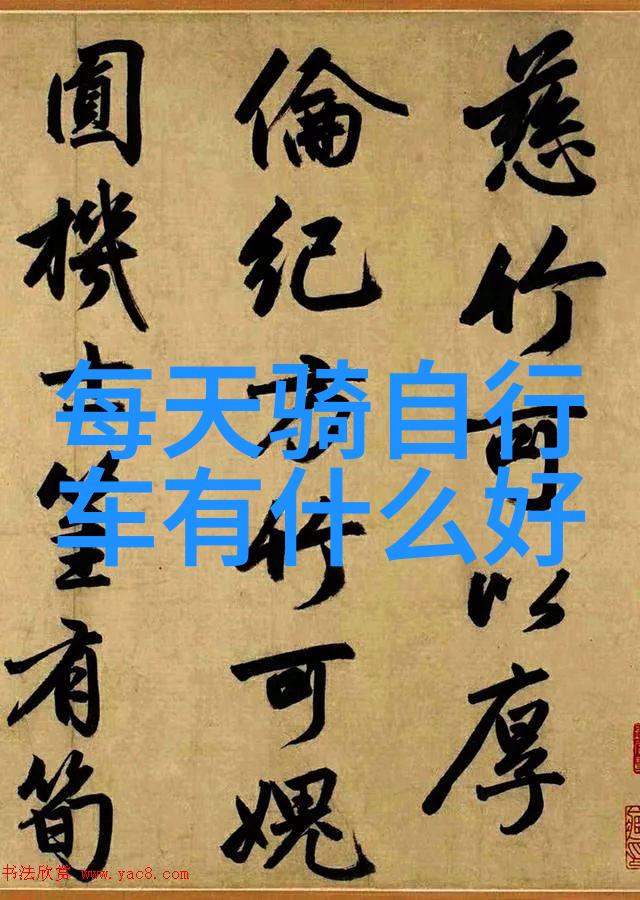 慈竹可以厚
倫紀方竹可愧
圓機有筍
每天骑自行
车有什么好
书法欣赏 www.yac8.com